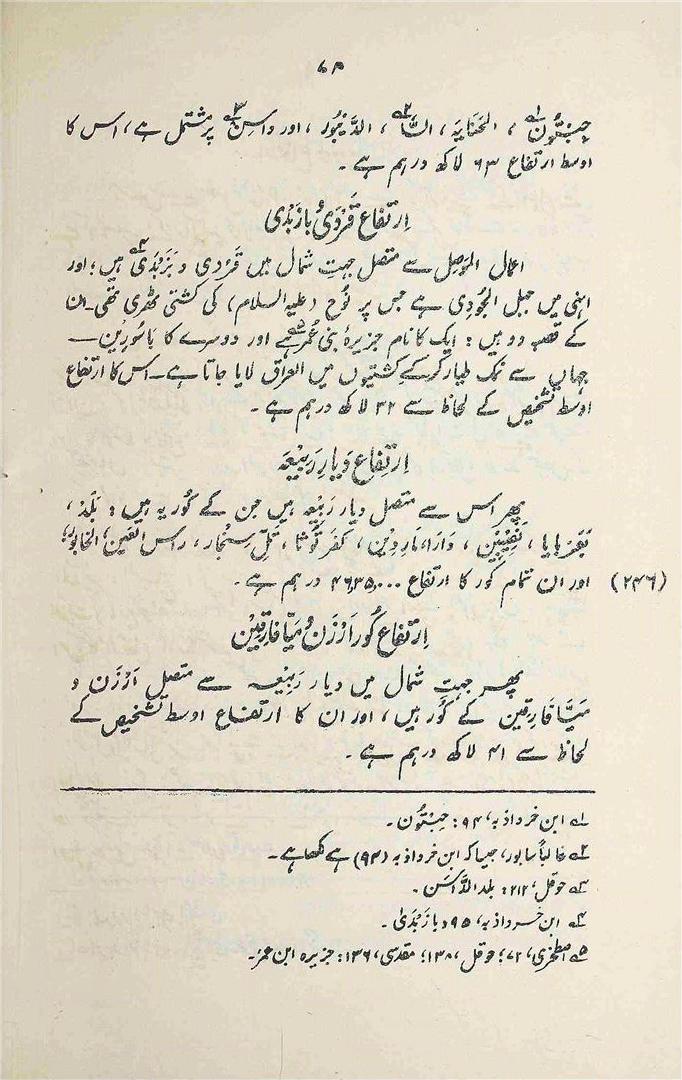 ۷۴
چِبْتُون۱ؔ ، الحنایہ ، السّا۲ؔ ، الدَّیبُور ، اور داسِن۳ؔ پر مشتمل ہے ، اس کا
اوسط ارتفاع ۶۳ لاکھ درہم ہے ۔
اِرتفاع قَرْدیٰ و بازَبْدیٰ
اعمال المَوصِل سے متصل جہتِ شمال میں قَرْدی و بَزَبْدَی۴ؔ ہیں ؛ اور
انہی میں جبل الجُودِی ہے جس پر نُوح (علیہ السلام) کی کشتی ٹھری تھی ۔ ان
کے قصبہ دو ہیں : ایک کا نام جزیرۂ بنی عُمر۵ؔ ہے اور دوسرے کا باسُورِین —
جہاں سے نمک طیار کر کے کشتیوں میں العراق لایا جاتا ہے ۔ اس کا ارتفاع
اوسط تشخیص کے لحاظ سے ۳۲ لاکھ درہم ہے ۔
اِرتفاع دَیارِ رَبِیْعَہ
پھر اس سے متصل دیار رَبِیْعہ ہیں جن کے کُور یہ ہیں : بَلَد ،
بَعَرْبایا ، نَصِیْبِین ، دَارا ، مَارِدِیْن ، کَفَر تُوثا ، تَلِّ سِنْجَار ، راس العَین ، الخابُور ؛
(۲۴۶) اور ان تمام کور کا ارتفاع ۴۶,۳۵,۰۰۰ درہم ہے ۔
اِرتفاع کُور اَرْزَن و مَیّا فارِقِین
پھر جہتِ شمال میں دیار رَبِیْعہ سے متصل اَرْزَن و
مَیَّا فَارِقِین کے کُور ہیں ، اور ان کا ارتفاع اوسط تشخیص کے
لحاظ سے ۴۱ لاکھ درہم ہے ۔
۱ؔ ابن خرداذبہ ، ۹۴ : حِبْتُون ۔
۲ؔ غالباً سابور ، جیسا کہ ابن خرداذبہ (۹۴) نے لکھا ہے ۔
۳ؔ حوقل ، ۲۱۲ : بلد الدَّاسَن ۔
۴ؔ ابن خرداذبہ ، ۹۵ : و بازَبْدَیٰ ۔
۵ؔ اصطخری ، ۷۲ ؛ حوقل ، ۱۳۸ ؛ مقدسی ، ۱۳۶ : جزیرہ ابن عمر ۔